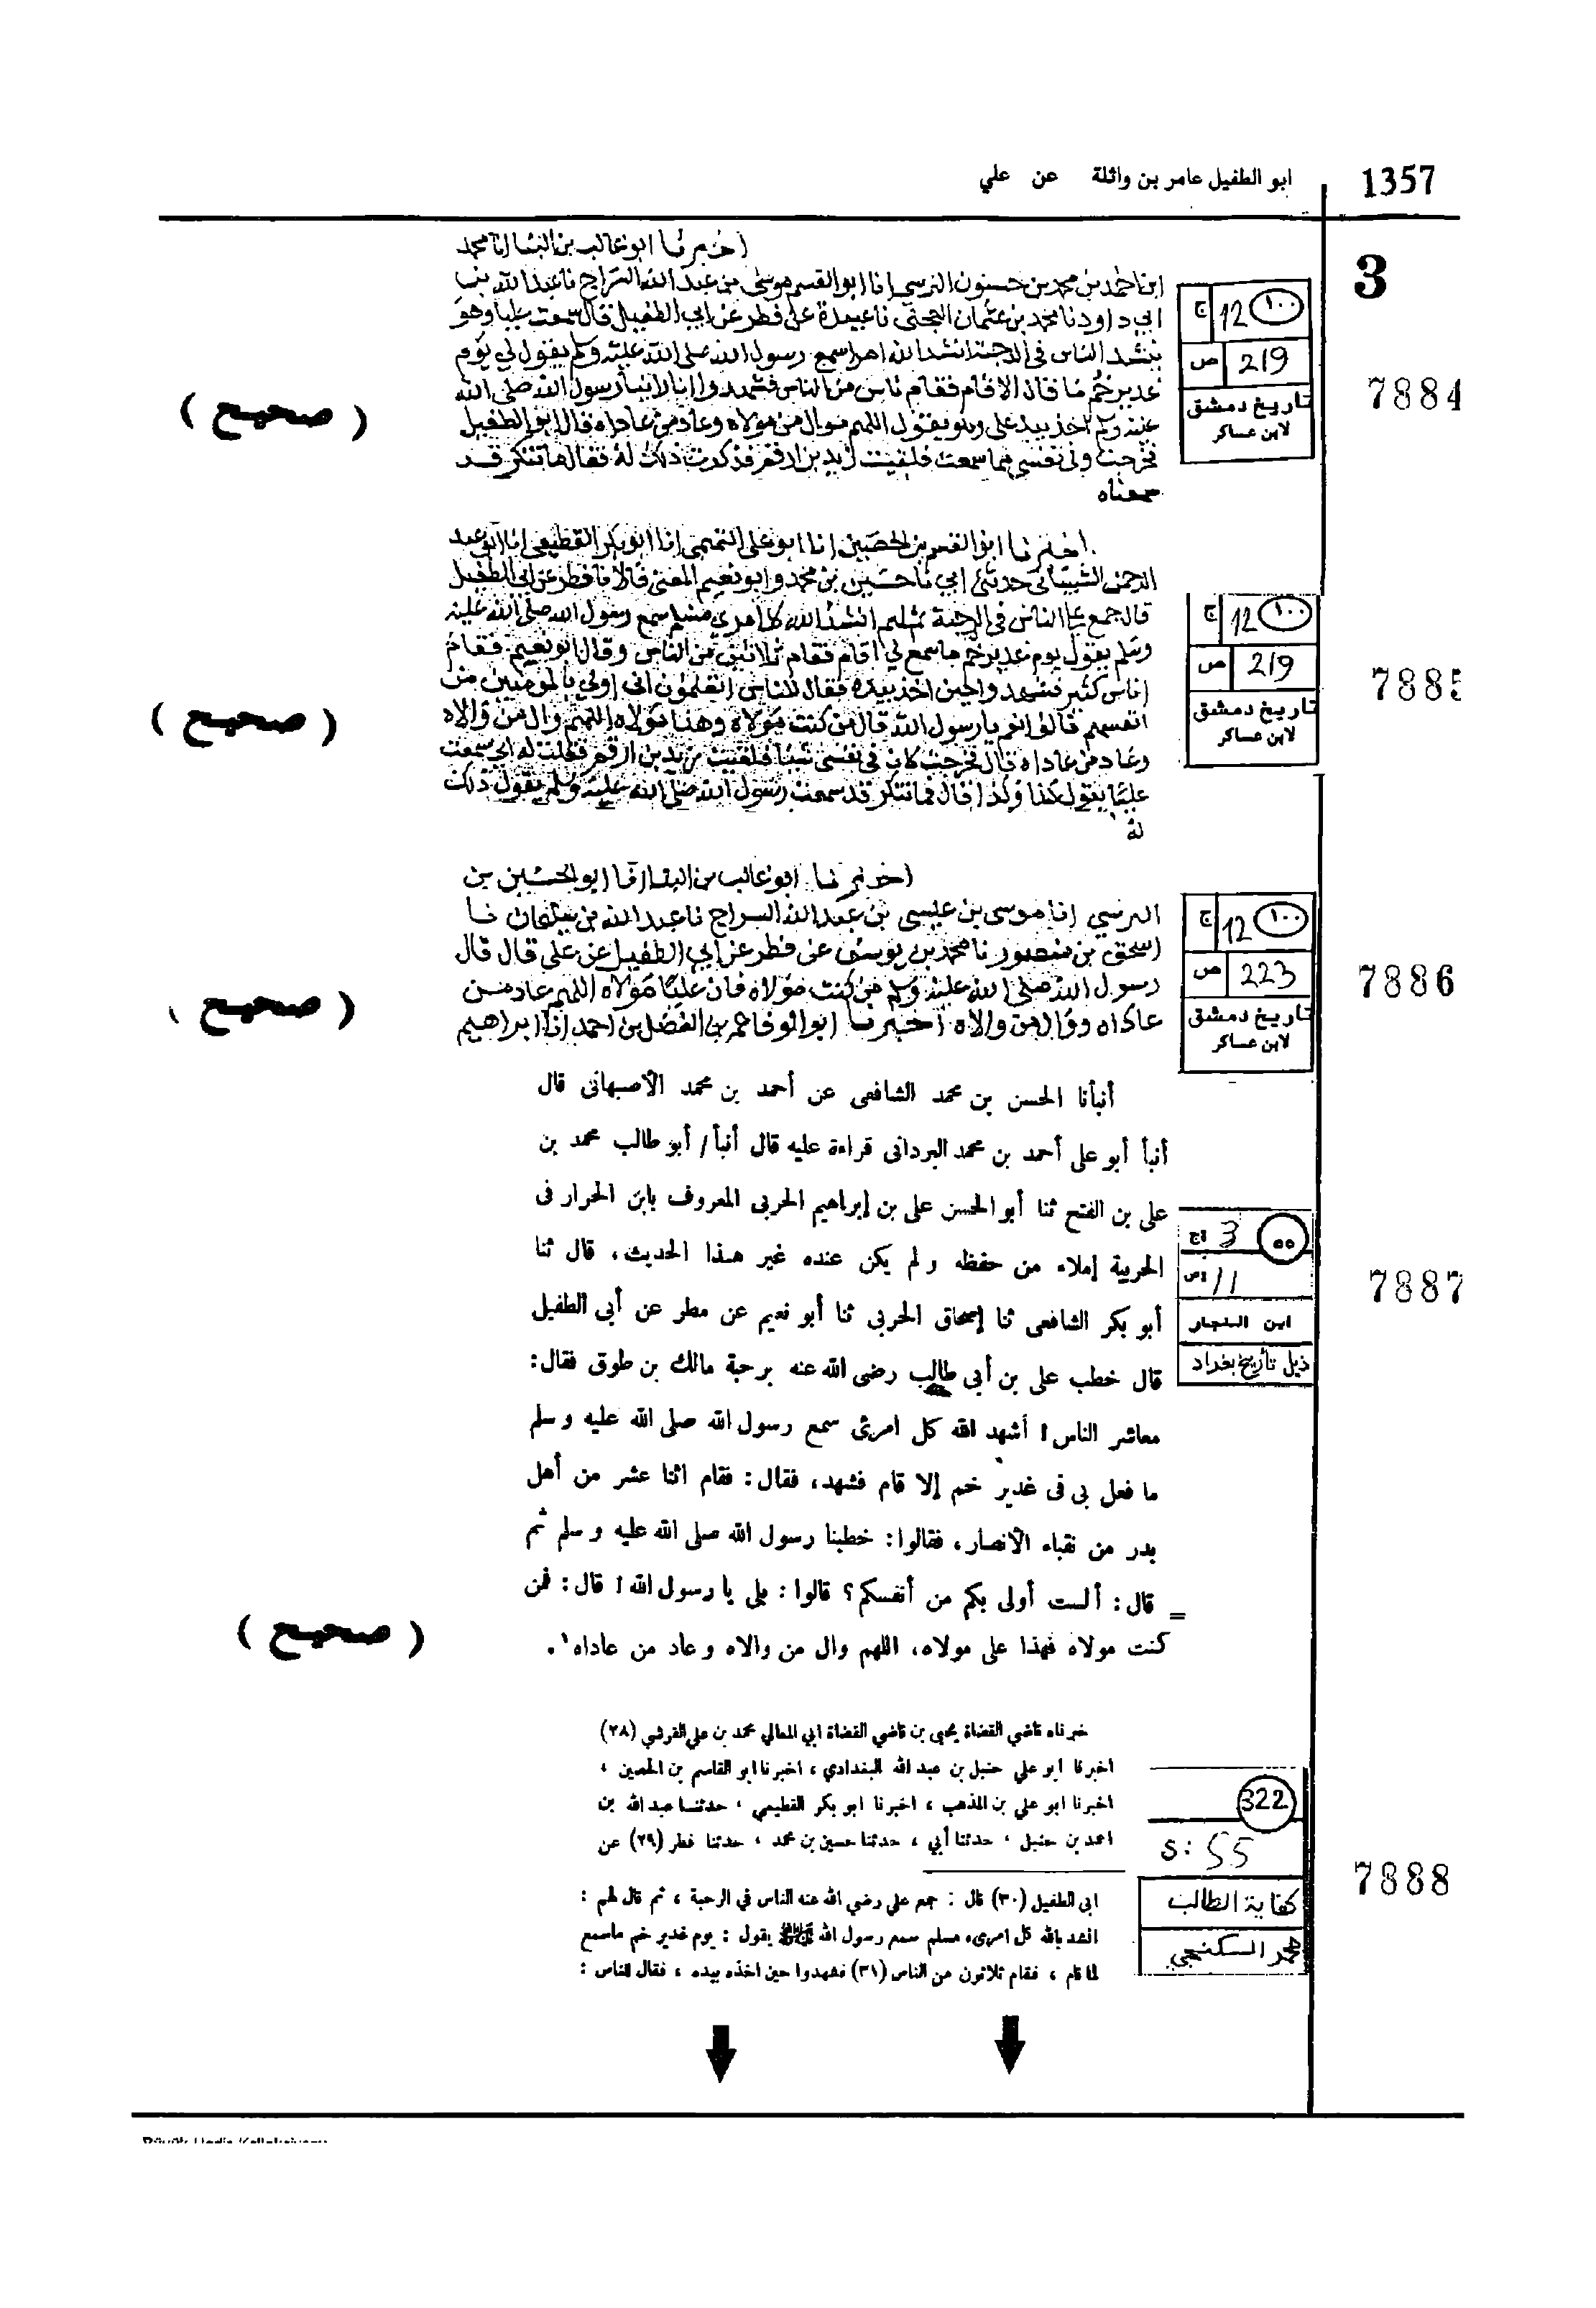 1357
ابو الطفيل عامر بن واثلة عن علي
3
اخبرنا ابو غالب بن البنا انا محمد
ابن احمد بن محمد بن حسنون النرسي انا ابو القسم موسى بن عبد الله السراج نا عبد الله بن
ابي داود نا محمد بن عثمان العجلي نا عبيدة عن فطر عن ابي الطفيل قال سمعت عليا وهو
ينشد الناس في الرحبة انشد الله امرا سمع رسول الله صلى الله عليه وسلم يقول لي يوم
غدير خم ما قال الا قام فقام ناس من الناس فشهدوا رسول الله صلى الله
عليه وسلم اخذ بيد علي وهو يقول اللهم وال من مولاه وعاد من عاداه قال ابو الطفيل
فخرجت وفي نفسي مما سمعت فلقيت زيد بن ارقم فذكرت ذلك له فقال ما تنكر قد
سمعناه
ج 12 ١٠٠
ص 219
تاريخ دمشق
لابن عساكر
7884
( صحيح )
اخبرنا ابو القسم بن الحصين انا ابو علي التميمي انا ابو بكر القطيعي انا ابو عبد
الرحمن الشيباني حدثني ابي نا حسين بن محمد وابو نعيم المعنى قالا نا فطر عن ابي الطفيل
قال جمع علي الناس في الرحبة ثم قال لهم انشد الله كل امرئ مسلم سمع رسول الله صلى الله عليه
وسلم يقول يوم غدير خم ما سمع لما قام فقام ثلاثون من الناس وقال ابو نعيم فقام
اناس كثير فشهدوا حين اخذ بيده فقال للناس اتعلمون اني اولى بالمومنين من
انفسهم قالوا نعم يا رسول الله قال من كنت مولاه وهذا مولاه اللهم وال من والاه
وعاد من عاداه قال فخرجت كان في نفسي شيئا فلقيت زيد بن ارقم فقلت له اني سمعت
عليا يقول كذا وكذا قال فما تنكر قد سمعت رسول الله صلى الله عليه وسلم يقول ذلك
له
ج 12 ١٠٠
ص 219
تاريخ دمشق
لابن عساكر
7885
( صحيح )
اخبرنا ابو غالب بن البنا انا ابو الحسين بن
النرسي انا موسى بن عيسى بن عبد الله السراج نا عبد الله بن سليمان نا
اسحق بن منصور نا محمد بن يوسف عن فطر عن ابي الطفيل عن علي قال قال
رسول الله صلى الله عليه وسلم من كنت مولاه فان عليا مولاه اللهم عاد من
عاداه ووال من والاه اخبرنا ابو الوفا عمر بن الفضل بن احمد انا ابراهيم
ج 12 ١٠٠
ص 223
تاريخ دمشق
لابن عساكر
7886
( صحيح )
أنبأنا الحسن بن محمد الشافعى عن أحمد بن محمد الأصبهانى قال
أنبأ أبو على أحمد بن محمد البردانى قراءة عليه قال أنبأ / أبو طالب محمد بن
على بن الفتح ثنا أبو الحسن على بن إبراهيم الحربى المعروف بابن الحرار فى
الحربية إملاء من حفظه ولم يكن عنده غير هذا الحديث، قال ثنا
أبو بكر الشافعى ثنا إسحاق الحربى ثنا أبو نعيم عن مطر عن أبى الطفيل
قال خطب على بن أبى طالب رضى الله عنه برحبة مالك بن طوق فقال:
معاشر الناس! أشهد الله كل امرئ سمع رسول الله صلى الله عليه وسلم
ما فعل بى فى غدير خم إلا قام فشهد، فقال: فقام اثنا عشر من أهل
بدر من نقباء الأنصار، فقالوا: خطبنا رسول الله صلى الله عليه وسلم ثم
= قال: ألست أولى بكم من أنفسكم؟ قالوا: بلى يا رسول الله! قال: فمن
كنت مولاه فهذا على مولاه، اللهم وال من والاه وعاد من عاداه١.
ج 3 ٥٥
ص 11
ابن النجار
ذيل تأريخ بغداد
7887
( صحيح )
خبرناه قاضي القضاة يحيى بن قاضي القضاة ابي المعالي محمد بن علي القرشي (٢٨)
اخبرنا ابو علي حنبل بن عبد الله البغدادي ، اخبرنا ابو القاسم بن الحصين ،
اخبرنا ابو علي بن المذهب ، اخبرنا ابو بكر القطيعي ، حدثنا عبد الله بن
احمد بن حنبل ، حدثنا أبي ، حدثنا حسين بن محمد ، حدثنا فطر (٢٩) عن
ابي الطفيل (٣٠) قال : جمع علي رضي الله عنه الناس في الرحبة ، ثم قال لهم :
انشد بالله كل امرىء مسلم سمع رسول الله ﷺ يقول : يوم غدير خم ماسمع
لما قام ، فقام ثلاثون من الناس (٣١) فشهدوا حين اخذه بيده ، فقال للناس :
322
S: 55
كفاية الطالب
7888